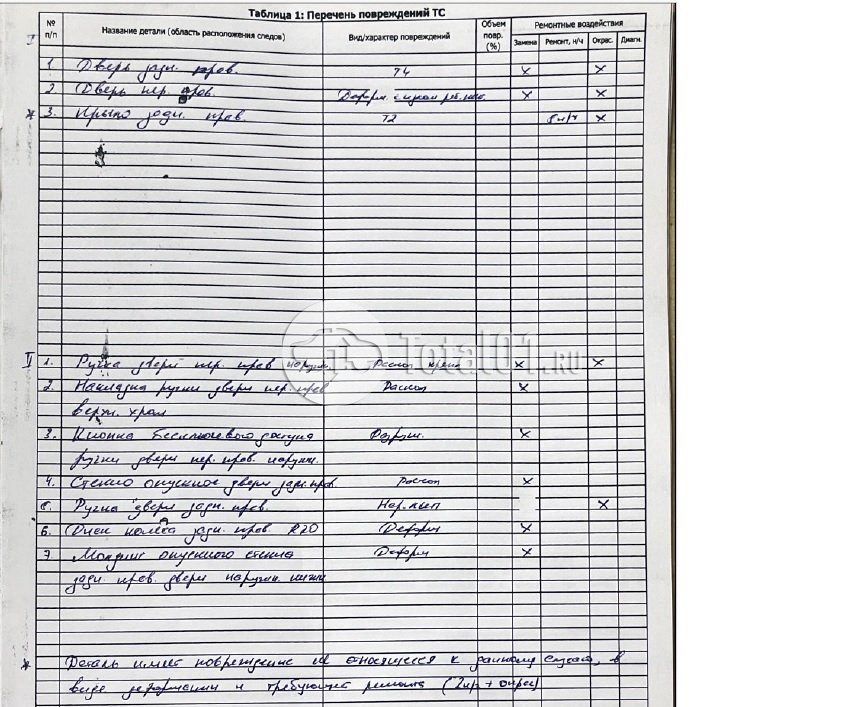 Таблица 1: Перечень повреждений ТС
№ п/п Название детали (область расположения следов) Вид/характер повреждений Объем повр. (%) Ремонтные воздействия
Замена Ремонт, н/ч Окрас. Диагн.
I
1. Дверь задн. прав. T4 x x
2 Дверь пер. прав. Деформ. x x
* 3. Крыло задн. прав. T2 8н/ч x
Total01.RU
II 1. Ручка двери пер. прав наружн. Раскол x x
2. Накладка ручки двери пер. прав Раскол x
верхн. хром
3. Кнопка бесключевого доступа Разруш. x
ручки двери пер. прав. наружн.
4. Стекло опускное двери задн. прав Раскол x
5. Ручка двери задн. прав. Нар. лкп x
6. Диск колеса задн. прав. R20 Деформ x
7. Молдинг опускного стекла Деформ x
задн прав. двери наружн. нижн
* Деталь имеет повреждение не относящееся к данному случаю, в
виде деформации и требующей ремонта (2н/ч + окрас)